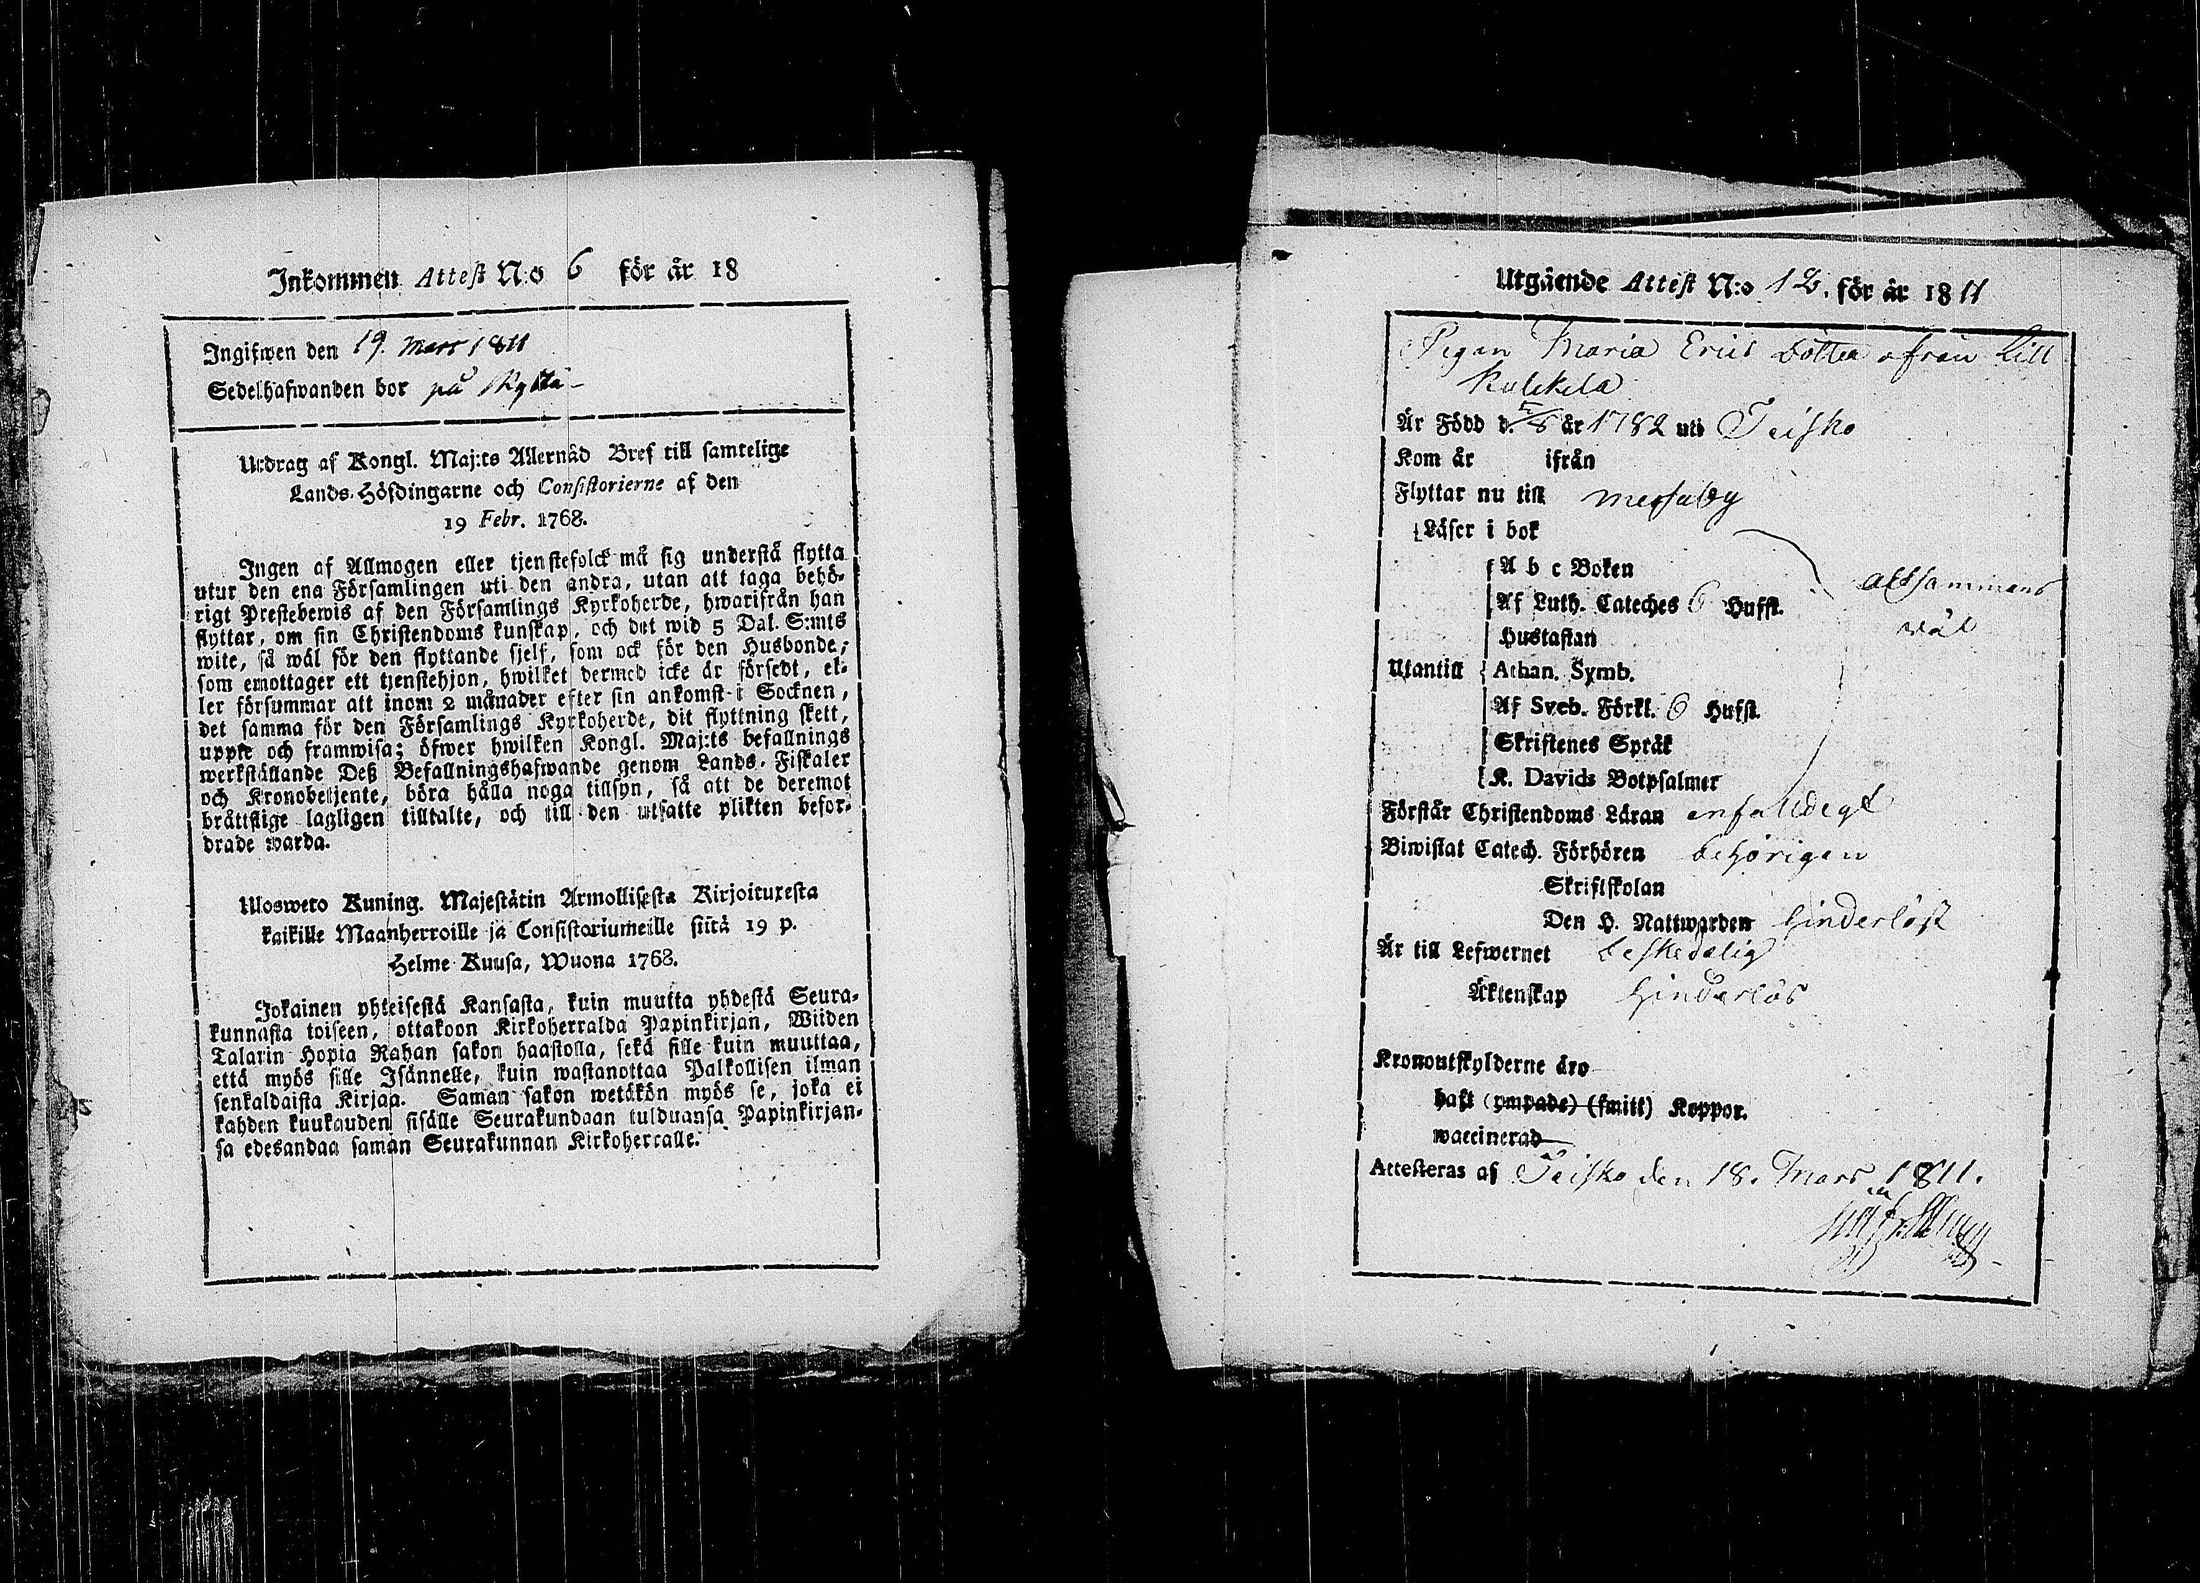 Inkommen Attest N:o 6 för år 18
Ingifwen den 19. Mars 1811
Sedelhafwanden bor på
Utdrag af Kongl. Maj:ts Allernåd Bref till samtelige
Lands-Höfdingarne och Consistorierne af den
19 Febr. 1768.
Ingen af Allmogen eller tjenstefolck må sig understå flytta
utur den ena Församlingen uti den andra, utan att taga behö-
rigt Prestebewis af den Församlings Kyrkoherde, hwarifrån han
flyttar, om sin Christendoms kunskap, och det wid 5 Dal. S:mts
wite, så wäl för den flyttande sjelf, som ock för den Husbonde,
som emottager ett tjenstehjon, hwilket dermed icke är försedt, el-
ler försummar att inom 2 månader efter sin ankomst i Socknen,
det samma för den Församlings Kyrkoherde, dit flyttning skett,
uppte och framwisa; öfwer hwilken Kongl. Maj:ts befallnings
werkställande Deß Befallningshafwande genom Lands-Fiskaler
och Kronobetjente, böra hålla noga tillsyn, så att de deremot
bråttslige lagligen tilltalte, och till den utsatte plikten befor-
drade warda.
Uloswето Kuning. Majestätin Armollisesta Kirjoituxesta
kaikille Maanherroille ja Consistoriumeille siitä 19 p.
Helme-Kuusa, Wuona 1768.
Jokainen yhteisestä Kansasta, kuin muutta yhdestä Seura-
kunnasta toiseen, ottakoon Kirkoherralda Papinkirjan, Wiiden
Talarin Hopia Rahan sakon haastolla, sekä sille kuin muuttaa,
että myös sille Isännelle, kuin wastanottaa Palkollisen ilman
senkaldaista Kirjaa. Saman sakon wetäkön myös se, joka ei
kahden kuukauden sisälle Seurakundaan tulduansa Papinkirjan-
sa edesandaa saman Seurakunnan Kirkoherralle.
Utgående Attest N:o 12. för år 1811
Pigan Maria Erics Dotter ifrån Lill
Kulckila
Är Född d. 5/8 år 1782 uti Teisko
Kom år ifrån
Flyttar nu till Messuby
Läser i bok
A b c Boken
Af Luth. Cateches 6 Hufst.
allsammans
Hustaflan
wäl
Utantill Athan. Symb.
Af Sveb. Förkl. 6 Hufst.
Skriftenes Språk
K. Davids Botpsalmer
Förstår Christendoms Läran enfalldigt
Biwistat Catech. Förhören behörigen
Skriftskolan
Den H. Nattwarden hinderlöst
Är till Lefwernet beskedelig
Äktenskap hinderlös
Kronoutskylderne äro
haft (ympade) (smitt) Koppor.
waccinerad
Attesteras af Teisko den 18. Mars 1811.